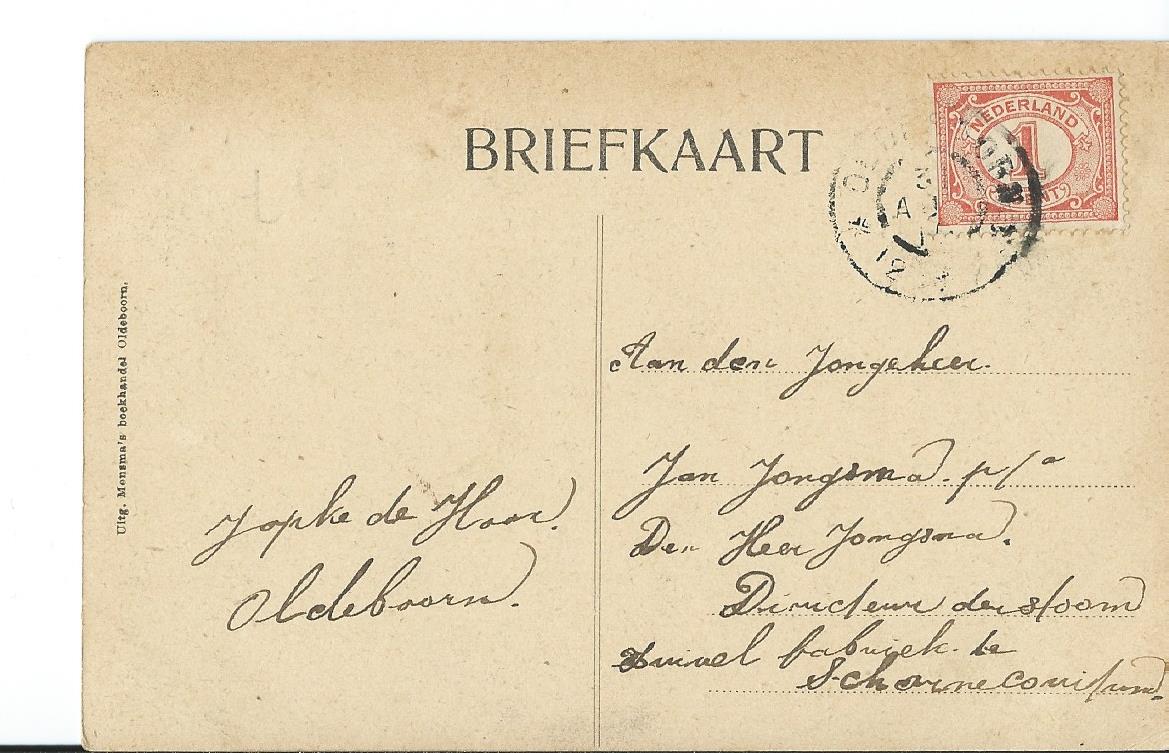 BRIEFKAART
NEDERLAND
1
CENT
Uitg. Mensma's boekhandel Oldeboorn.
Jopke de Haan.
Oldeboorn.
Aan den Jongeheer.
Jan Jongsma. p/a
Den Heer Jongsma.
Directeur der stoom
zuivel fabriek te